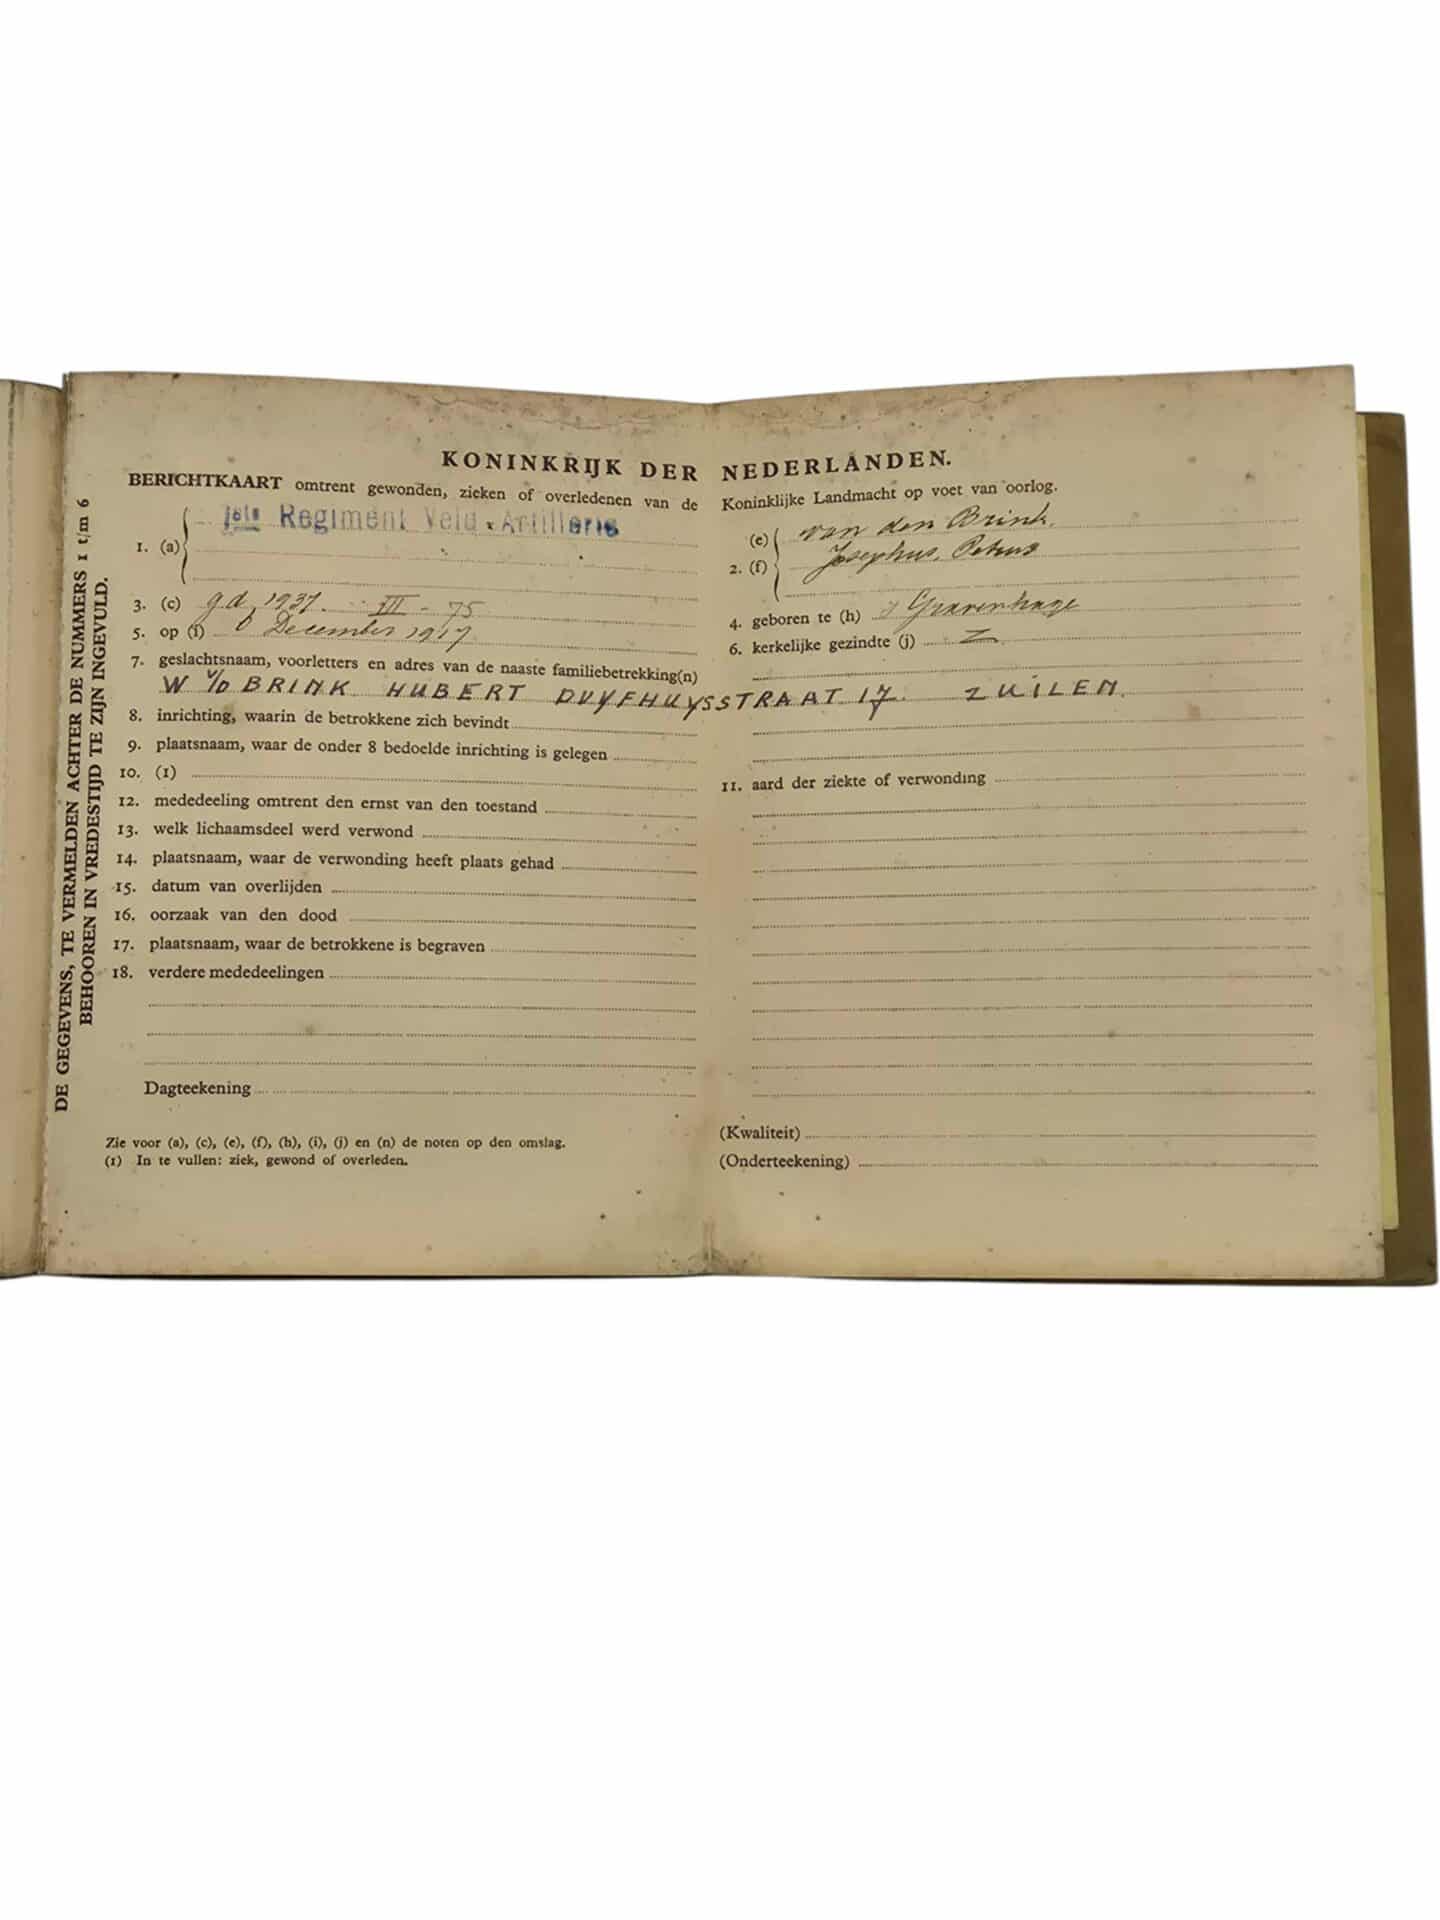 DE GEGEVENS, TE VERMELDEN ACHTER DE NUMMERS 1 t/m 6
BEHOOREN IN VREDESTIJD TE ZIJN INGEVULD.
KONINKRIJK DER NEDERLANDEN.
BERICHTKAART omtrent gewonden, zieken of overledenen van de Koninklijke Landmacht op voet van oorlog.
1. (a) 1ste Regiment Veld-Artillerie
(e) van den Brink.
2. (f) Josephus, Petrus
3. (c) gd. 1937. III - 75
4. geboren te (h) 's Gravenhage
5. op (i) 6 December 1917
6. kerkelijke gezindte (j)
7. geslachtsnaam, voorletters en adres van de naaste familiebetrekking(n)
W v/d BRINK HUBERT DUYFHUYSSTRAAT 17. ZUILEN.
8. inrichting, waarin de betrokkene zich bevindt
9. plaatsnaam, waar de onder 8 bedoelde inrichting is gelegen
10. (1)
11. aard der ziekte of verwonding
12. mededeeling omtrent den ernst van den toestand
13. welk lichaamsdeel werd verwond
14. plaatsnaam, waar de verwonding heeft plaats gehad
15. datum van overlijden
16. oorzaak van den dood
17. plaatsnaam, waar de betrokkene is begraven
18. verdere mededeelingen
Dagteekening
(Kwaliteit)
(Onderteekening)
Zie voor (a), (c), (e), (f), (h), (i), (j) en (n) de noten op den omslag.
(1) In te vullen: ziek, gewond of overleden.